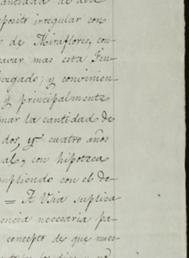 cantidad de dra
posito irregular con
r de Miraflores, con
ravar mas esta
rogado; y convenien
y principalmente
nar la cantidad de
dos, y cuatro años
al, con hipoteca
mpliendo con el de
= A Usia suplica
encia necesaria pa
concepto de que nues